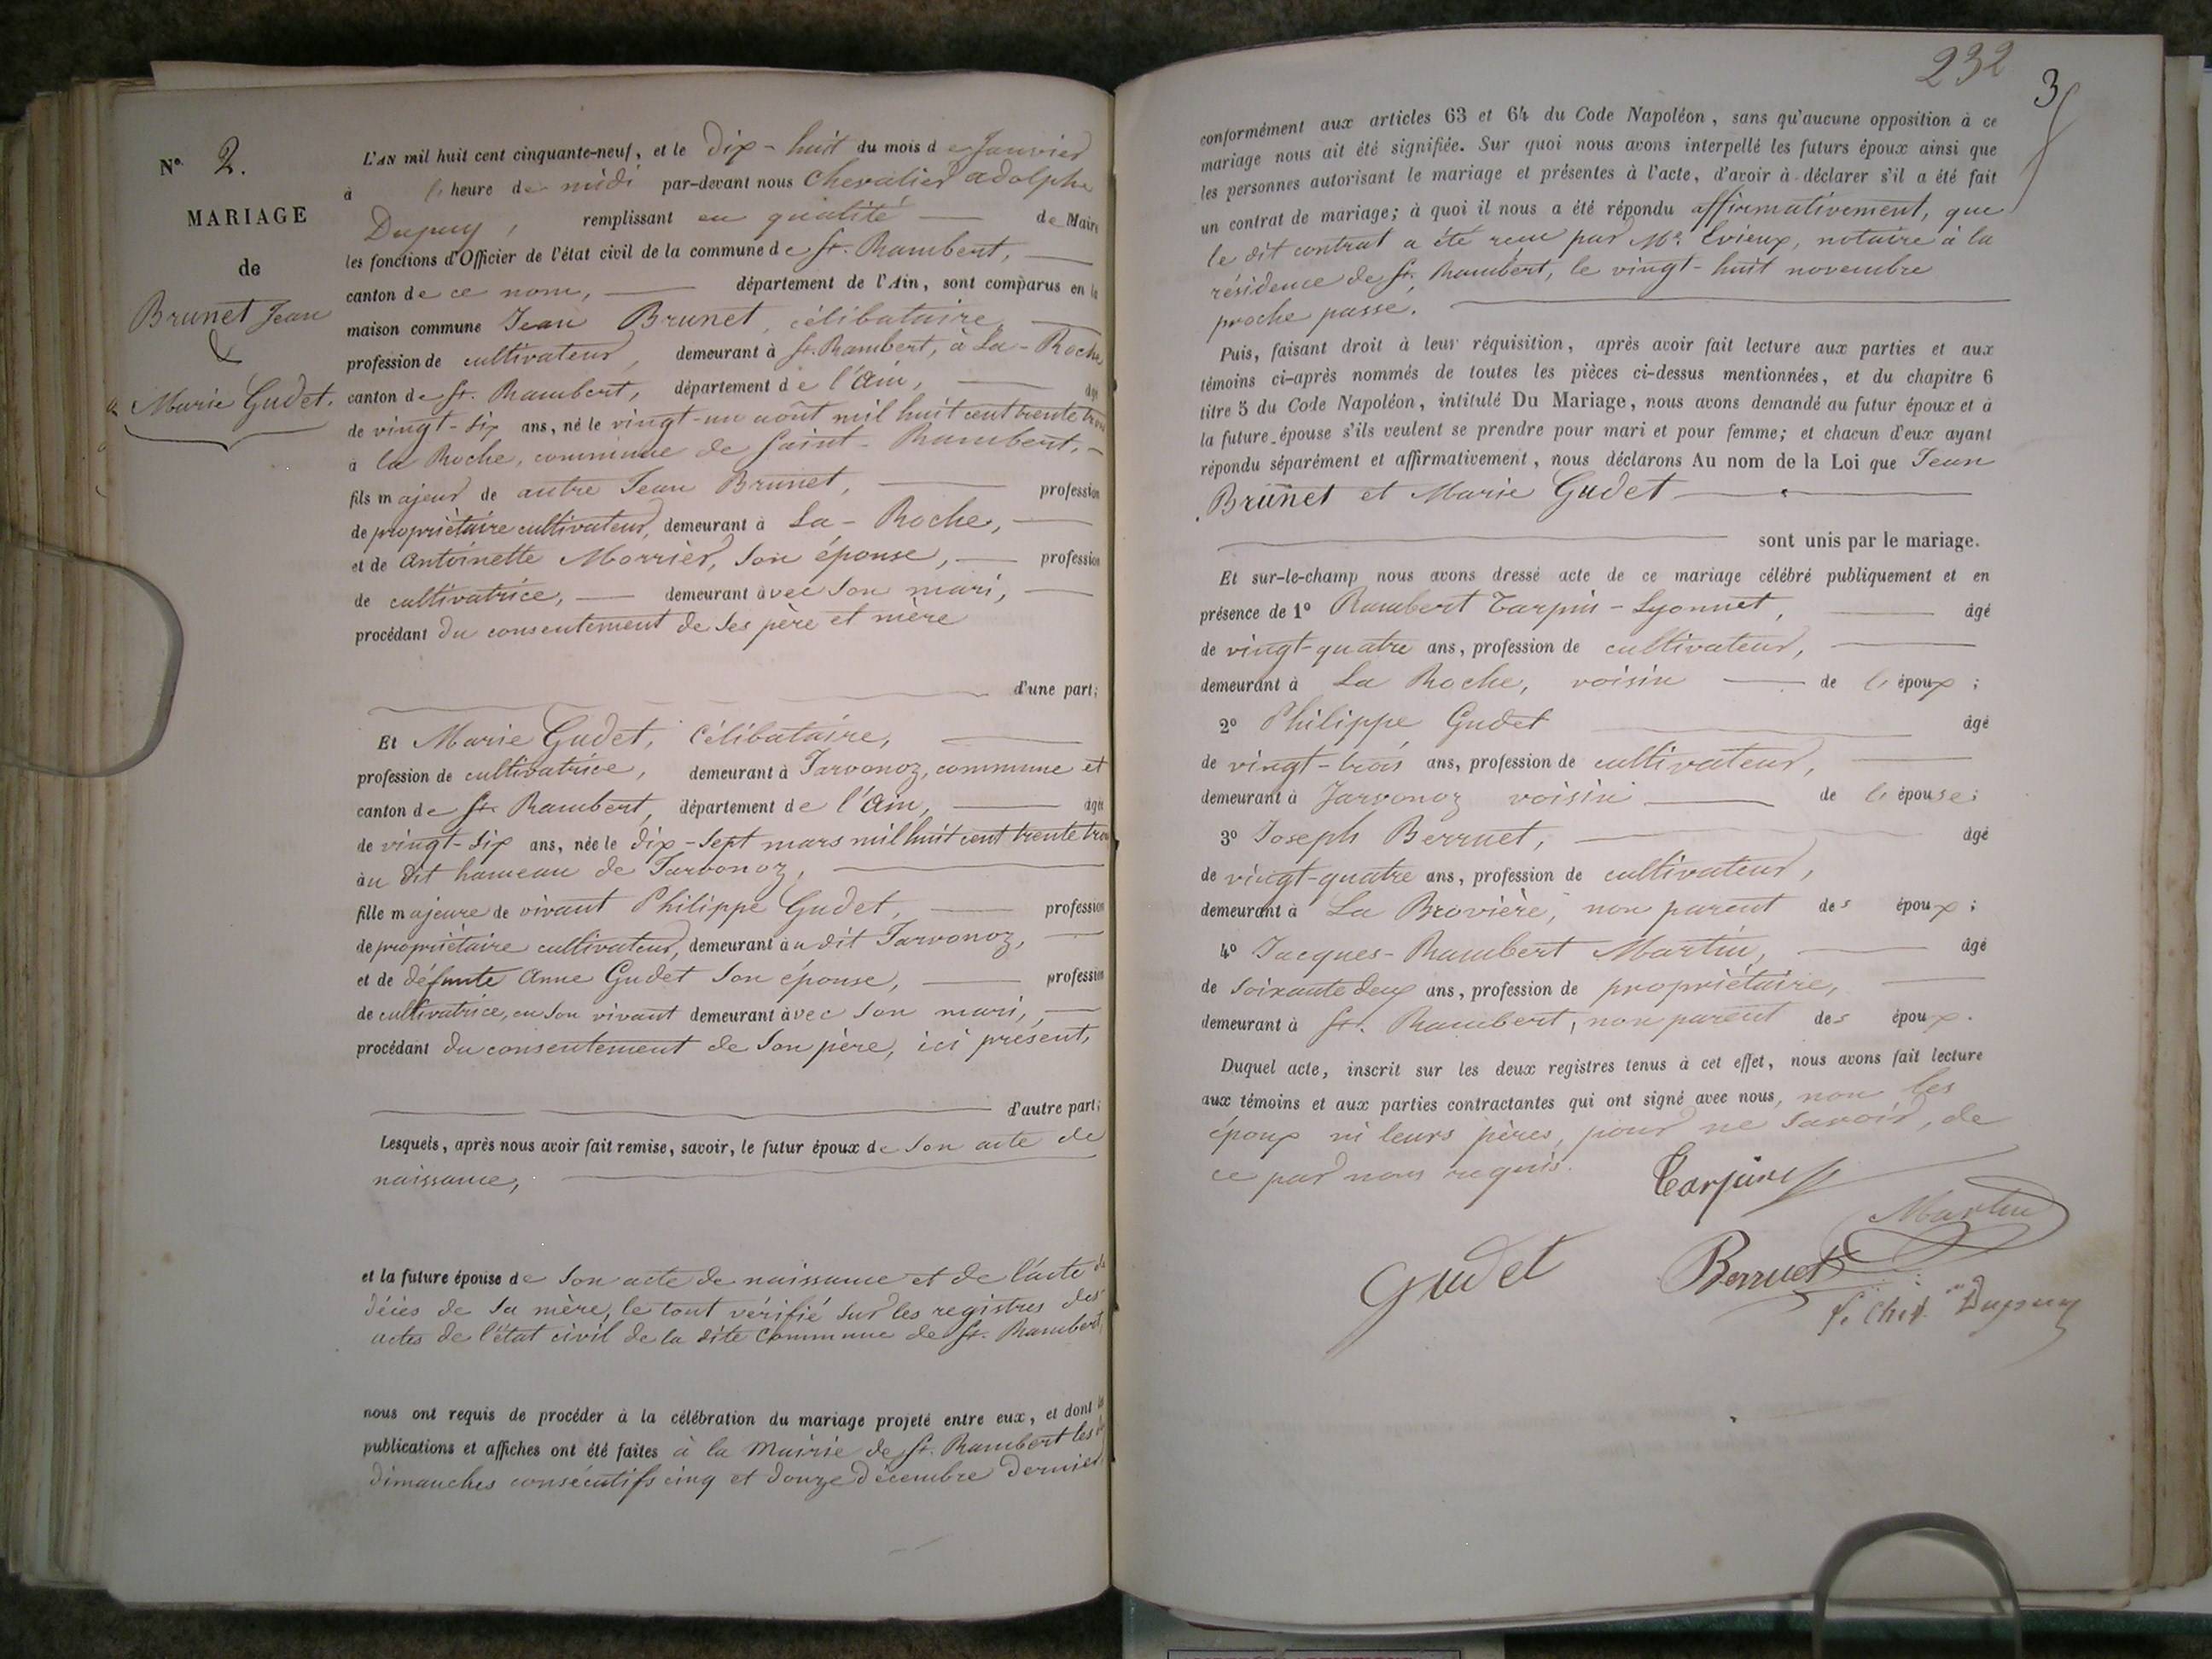 N° 2.
MARIAGE
de
Brunet Jean
&
Marie Gudet.
L'AN mil huit cent cinquante-neuf, et le dix-huit du mois de Janvier
à l'heure de midi par-devant nous Chevalier Adolphe
Dupuy, remplissant en qualité de Maire
les fonctions d'Officier de l'état civil de la commune de St. Rambert,
canton de ce nom, département de l'Ain, sont comparus en la
maison commune Jean Brunet, célibataire,
profession de cultivateur, demeurant à St. Rambert, à La-Roche,
canton de St. Rambert, département de l'Ain, âgé
de vingt-six ans, né le vingt-un août mil huit cent trente trois
à la Roche, commune de Saint-Rambert,
fils majeur de autre Jean Brunet, profession
de propriétaire cultivateur, demeurant à La-Roche,
et de Antoinette Morrier, son épouse, profession
de cultivatrice, demeurant avec son mari,
procédant du consentement de ses père et mère
d'une part;
Et Marie Gudet, Célibataire,
profession de cultivatrice, demeurant à Jarvonoz, commune et
canton de St. Rambert, département de l'Ain, âgée
de vingt-six ans, née le dix-sept mars mil huit cent trente trois
au dit hameau de Jarvonoz,
fille majeure de vivant Philippe Gudet, profession
de propriétaire cultivateur, demeurant au dit Jarvonoz,
et de défunte Anne Gudet son épouse, profession
de cultivatrice, en son vivant demeurant avec son mari,
procédant du consentement de son père, ici présent,
d'autre part;
Lesquels, après nous avoir fait remise, savoir, le futur époux de son acte de
naissance,
et la future épouse de son acte de naissance et de l'acte de
décès de sa mère, le tout vérifié sur les registres des
actes de l'état civil de la dite Commune de St. Rambert,
nous ont requis de procéder à la célébration du mariage projeté entre eux, et dont les
publications et affiches ont été faites à la Mairie de St. Rambert les
dimanches consécutifs cinq et douze décembre dernier
232
3
conformément aux articles 63 et 64 du Code Napoléon, sans qu'aucune opposition à ce
mariage nous ait été signifiée. Sur quoi nous avons interpellé les futurs époux ainsi que
les personnes autorisant le mariage et présentes à l'acte, d'avoir à déclarer s'il a été fait
un contrat de mariage; à quoi il nous a été répondu affirmativement, que
le dit contrat a été reçu par Me. Evieux, notaire à la
résidence de St. Rambert, le vingt-huit novembre
proche passé.
Puis, faisant droit à leur réquisition, après avoir fait lecture aux parties et aux
témoins ci-après nommés de toutes les pièces ci-dessus mentionnées, et du chapitre 6
titre 5 du Code Napoléon, intitulé Du Mariage, nous avons demandé au futur époux et à
la future épouse s'ils veulent se prendre pour mari et pour femme; et chacun d'eux ayant
répondu séparément et affirmativement, nous déclarons Au nom de la Loi que Jean
Brunet et Marie Gudet
sont unis par le mariage.
Et sur-le-champ nous avons dressé acte de ce mariage célébré publiquement et en
présence de 1° Rambert Tarpin-Lyonnet, âgé
de vingt-quatre ans, profession de cultivateur,
demeurant à La Roche, voisin de l'époux;
2° Philippe Gudet âgé
de vingt-trois ans, profession de cultivateur,
demeurant à Jarvonoz voisin de l'épouse;
3° Joseph Berruet, âgé
de vingt-quatre ans, profession de cultivateur,
demeurant à La Brovière, non parent des époux;
4° Jacques-Rambert Martin, âgé
de soixante deux ans, profession de propriétaire,
demeurant à St. Rambert, non parent des époux.
Duquel acte, inscrit sur les deux registres tenus à cet effet, nous avons fait lecture
aux témoins et aux parties contractantes qui ont signé avec nous, non les
époux ni leurs pères, pour ne savoir, de
ce par nous requis.
Tarpin
Martin
Gudet Berruet
Dupuy